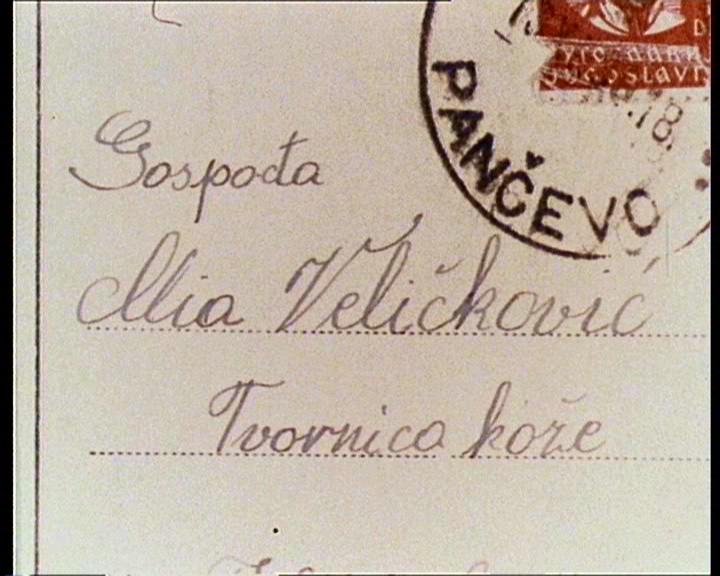 Jugoslavi
18
PANČEVO
Gospođa
Mia Veličković
Tvornica kože